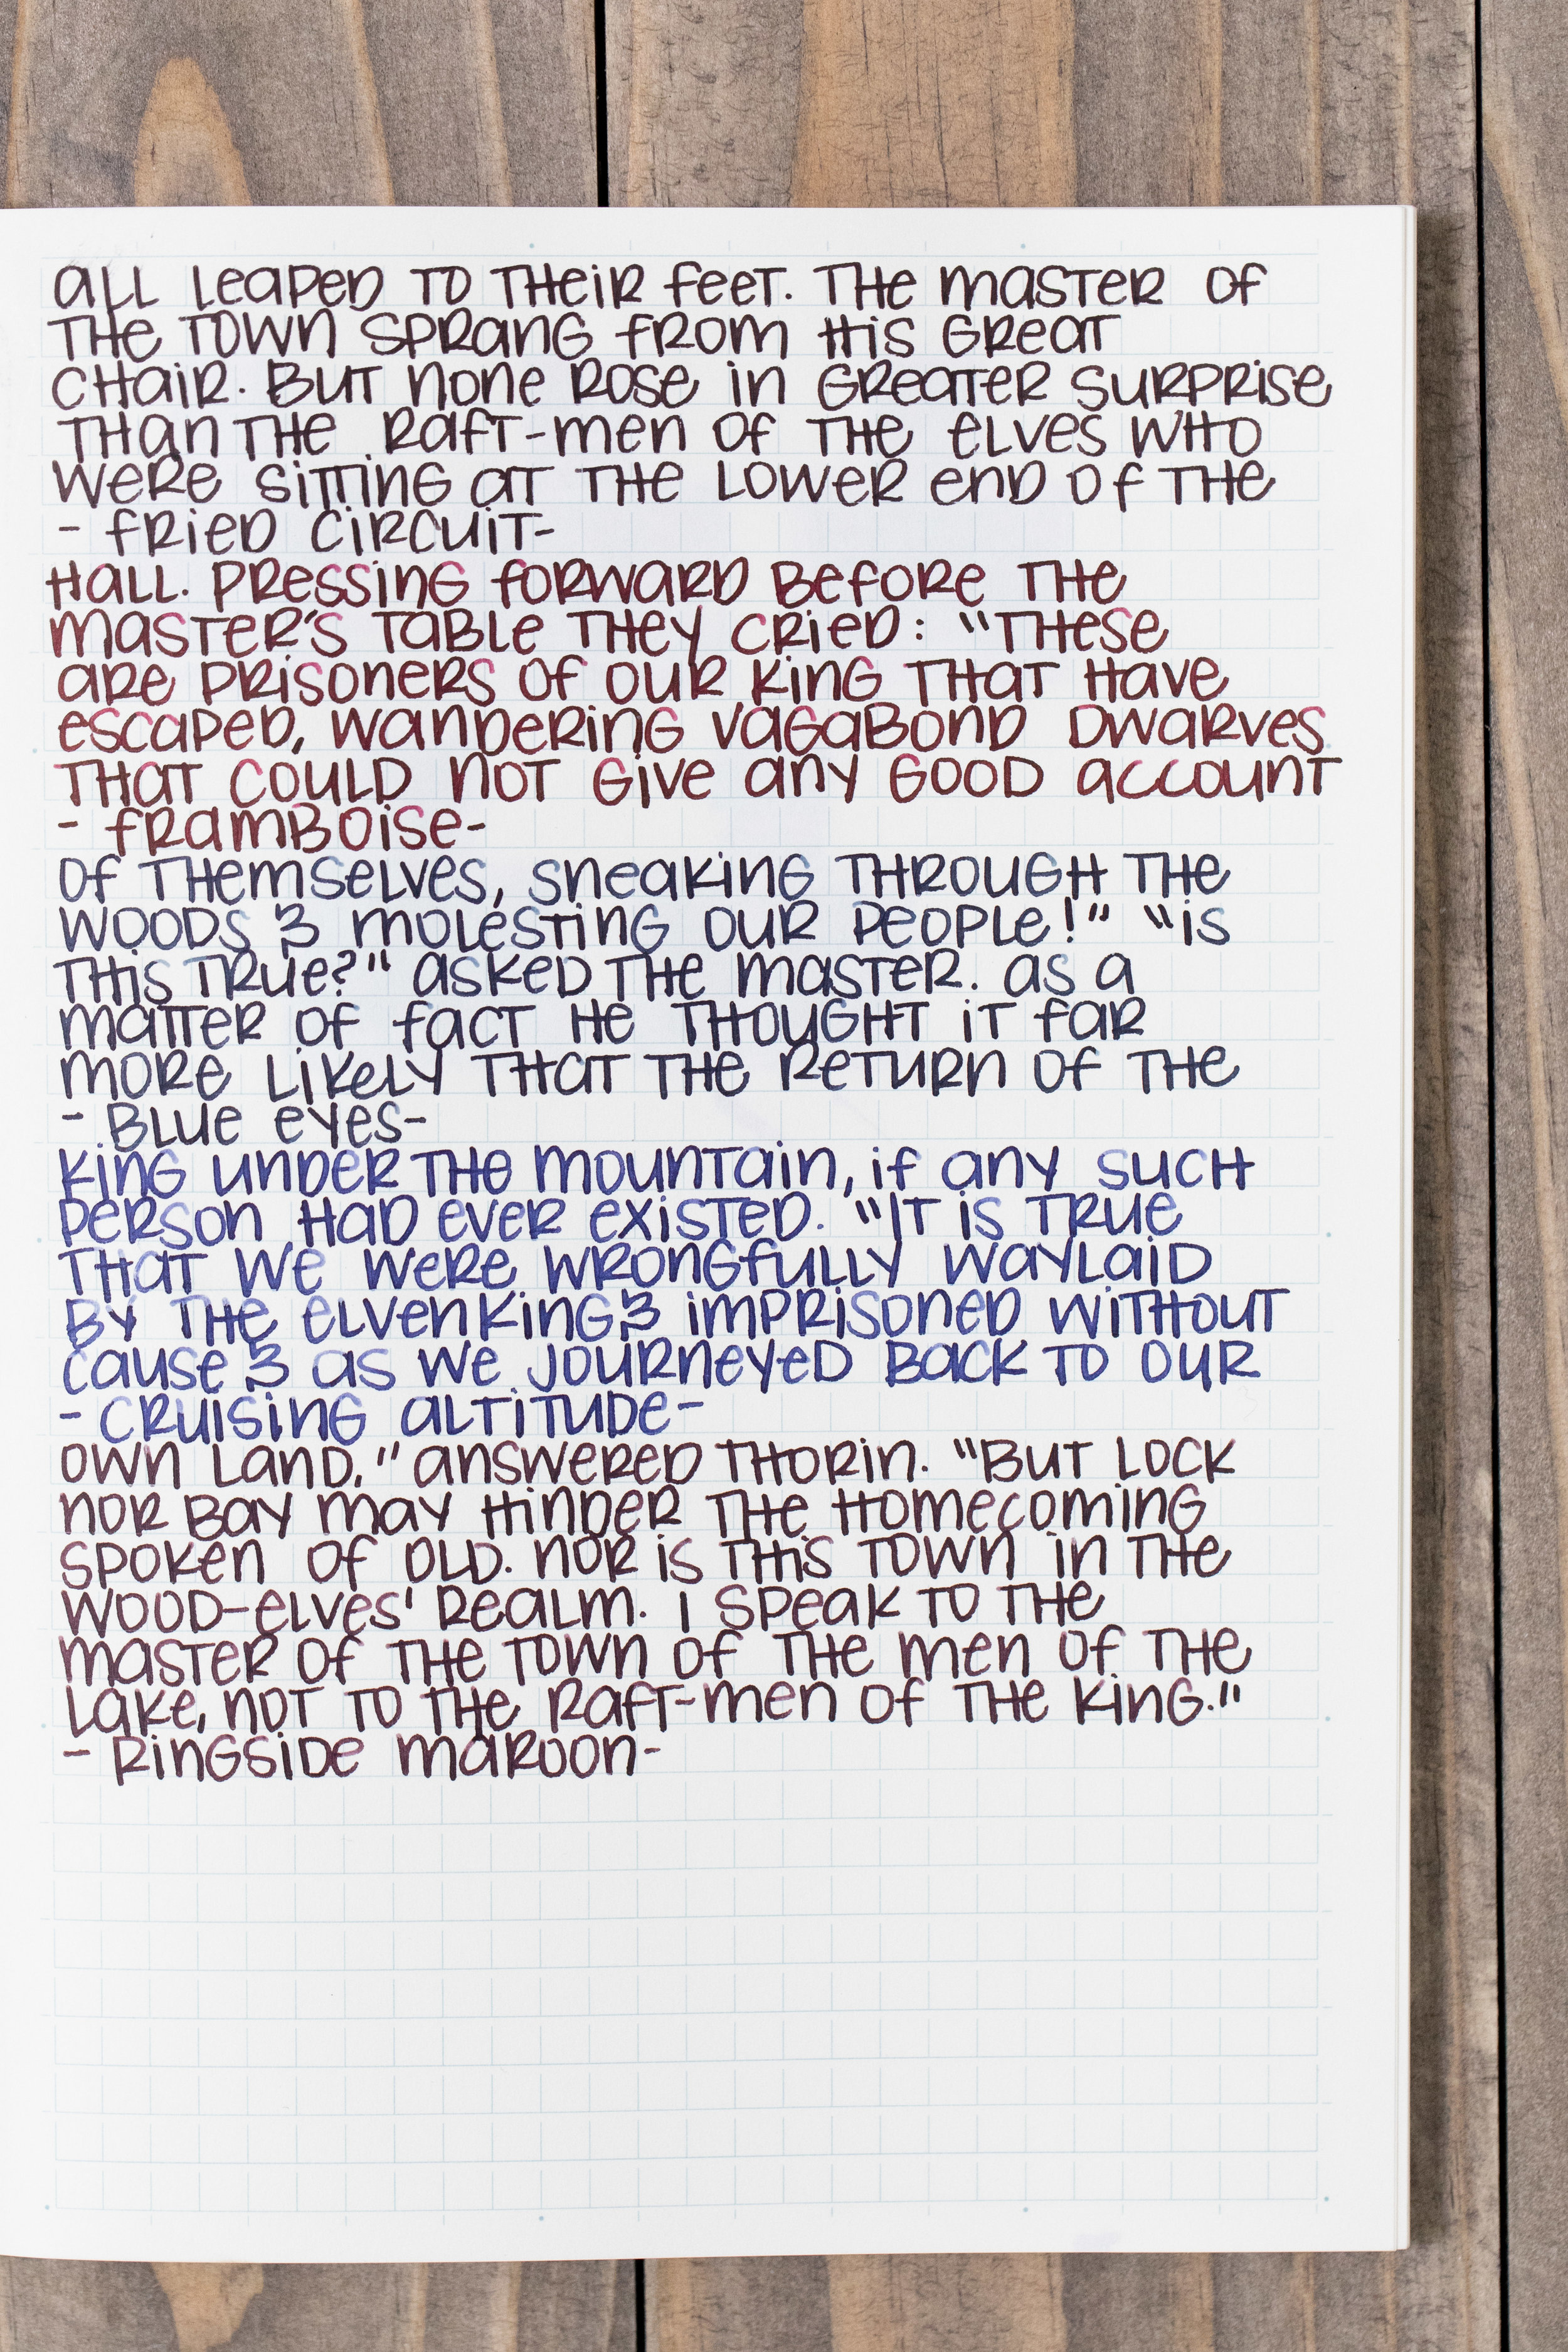 all leaped to their feet. The master of
the town sprang from his great
chair. But none rose in greater surprise
than the raft-men of the elves who
were sitting at the lower end of the
- Fried Circuit-
hall. Pressing forward before the
master's table they cried: "These
are prisoners of our king that have
escaped, wandering vagabond dwarves
that could not give any good account
- Framboise-
of themselves, sneaking through the
woods & molesting our people!" "Is
this true?" asked the master. As a
matter of fact he thought it far
more likely that the return of the
- Blue Eyes-
king under the mountain, if any such
person had ever existed. "It is true
that we were wrongfully waylaid
by the elvenking & imprisoned without
cause & as we journeyed back to our
- Cruising Altitude-
own land," answered Thorin. "But lock
nor bay may hinder the homecoming
spoken of old. Nor is this town in the
wood-elves' realm. I speak to the
master of the town of the men of the
lake, not to the raft-men of the king."
- Ringside Maroon-